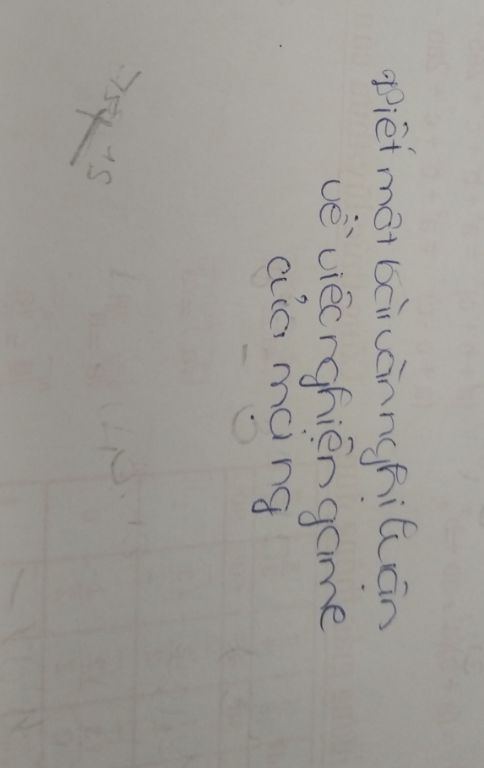 Viết một bài văn nghị luận
về việc nghiện game
của mạng